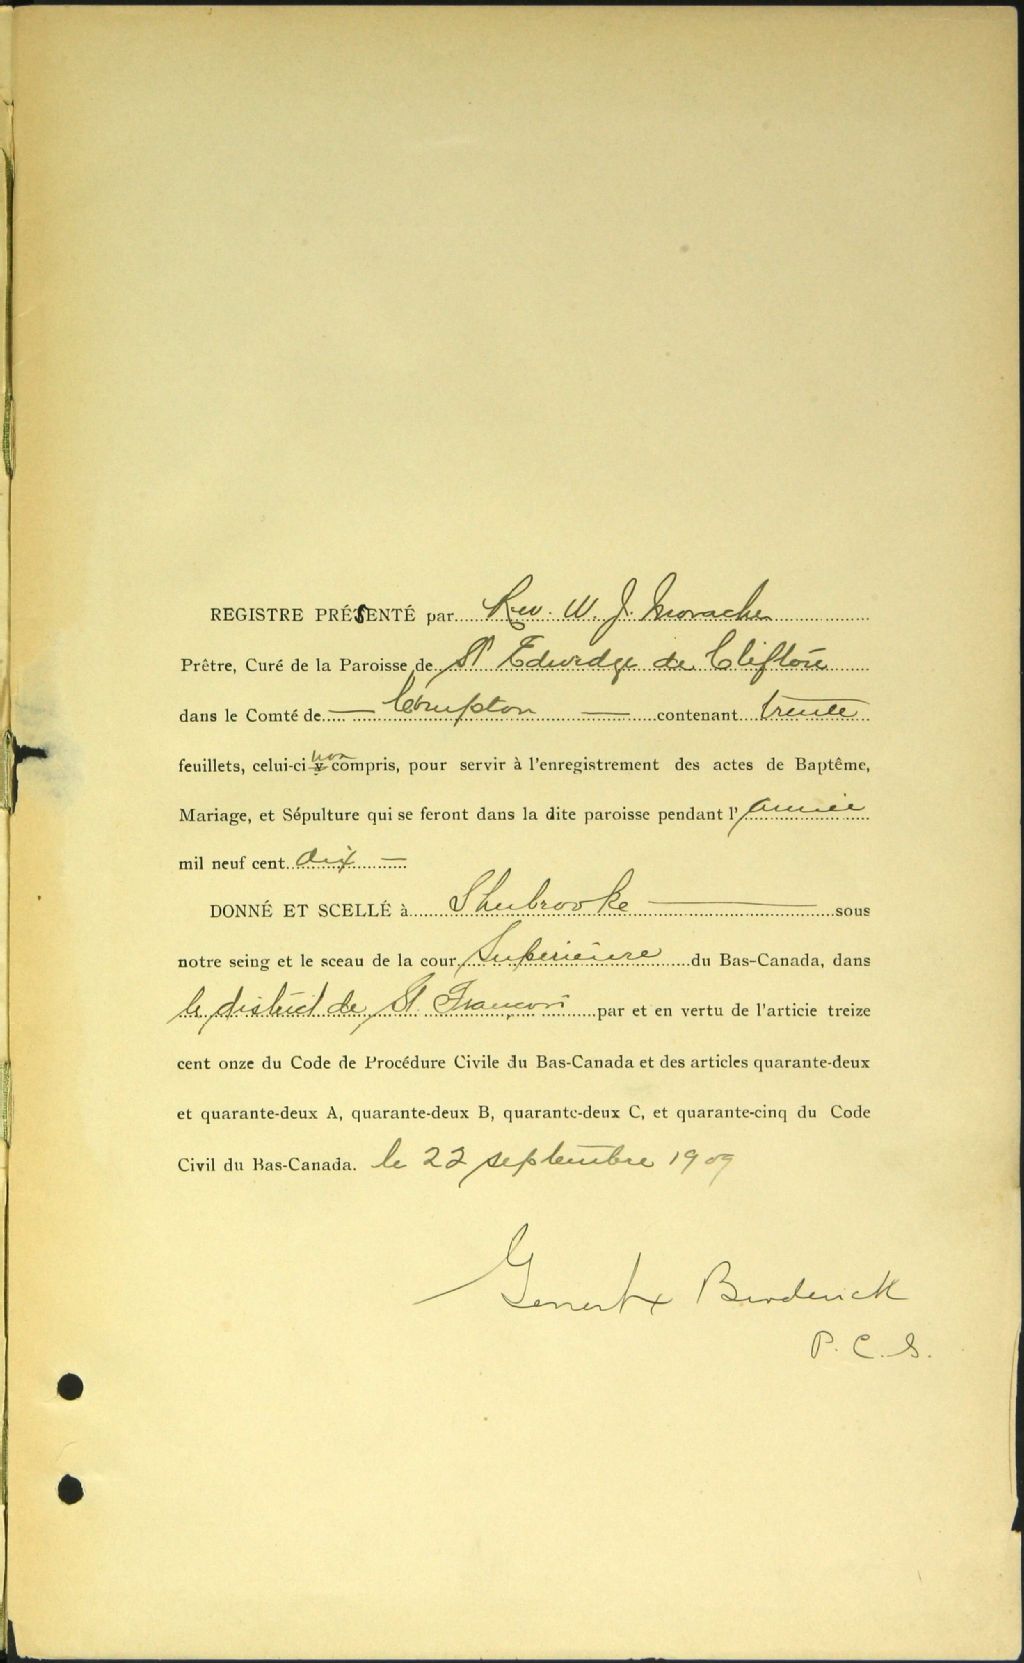 REGISTRE PRÉSENTÉ par Rev. W. J. Morache
Prêtre, Curé de la Paroisse de St Edwidge de Clifton
dans le Comté de — Compton — contenant trente
feuillets, celui-ci non compris, pour servir à l'enregistrement des actes de Baptême,
Mariage, et Sépulture qui se feront dans la dite paroisse pendant l'année
mil neuf cent dix —
DONNÉ ET SCELLÉ à Sherbrooke — sous
notre seing et le sceau de la cour Supérieure du Bas-Canada, dans
le district de St. François par et en vertu de l'article treize
cent onze du Code de Procédure Civile du Bas-Canada et des articles quarante-deux
et quarante-deux A, quarante-deux B, quarante-deux C, et quarante-cinq du Code
Civil du Bas-Canada. le 22 septembre 1909
P. C. S.